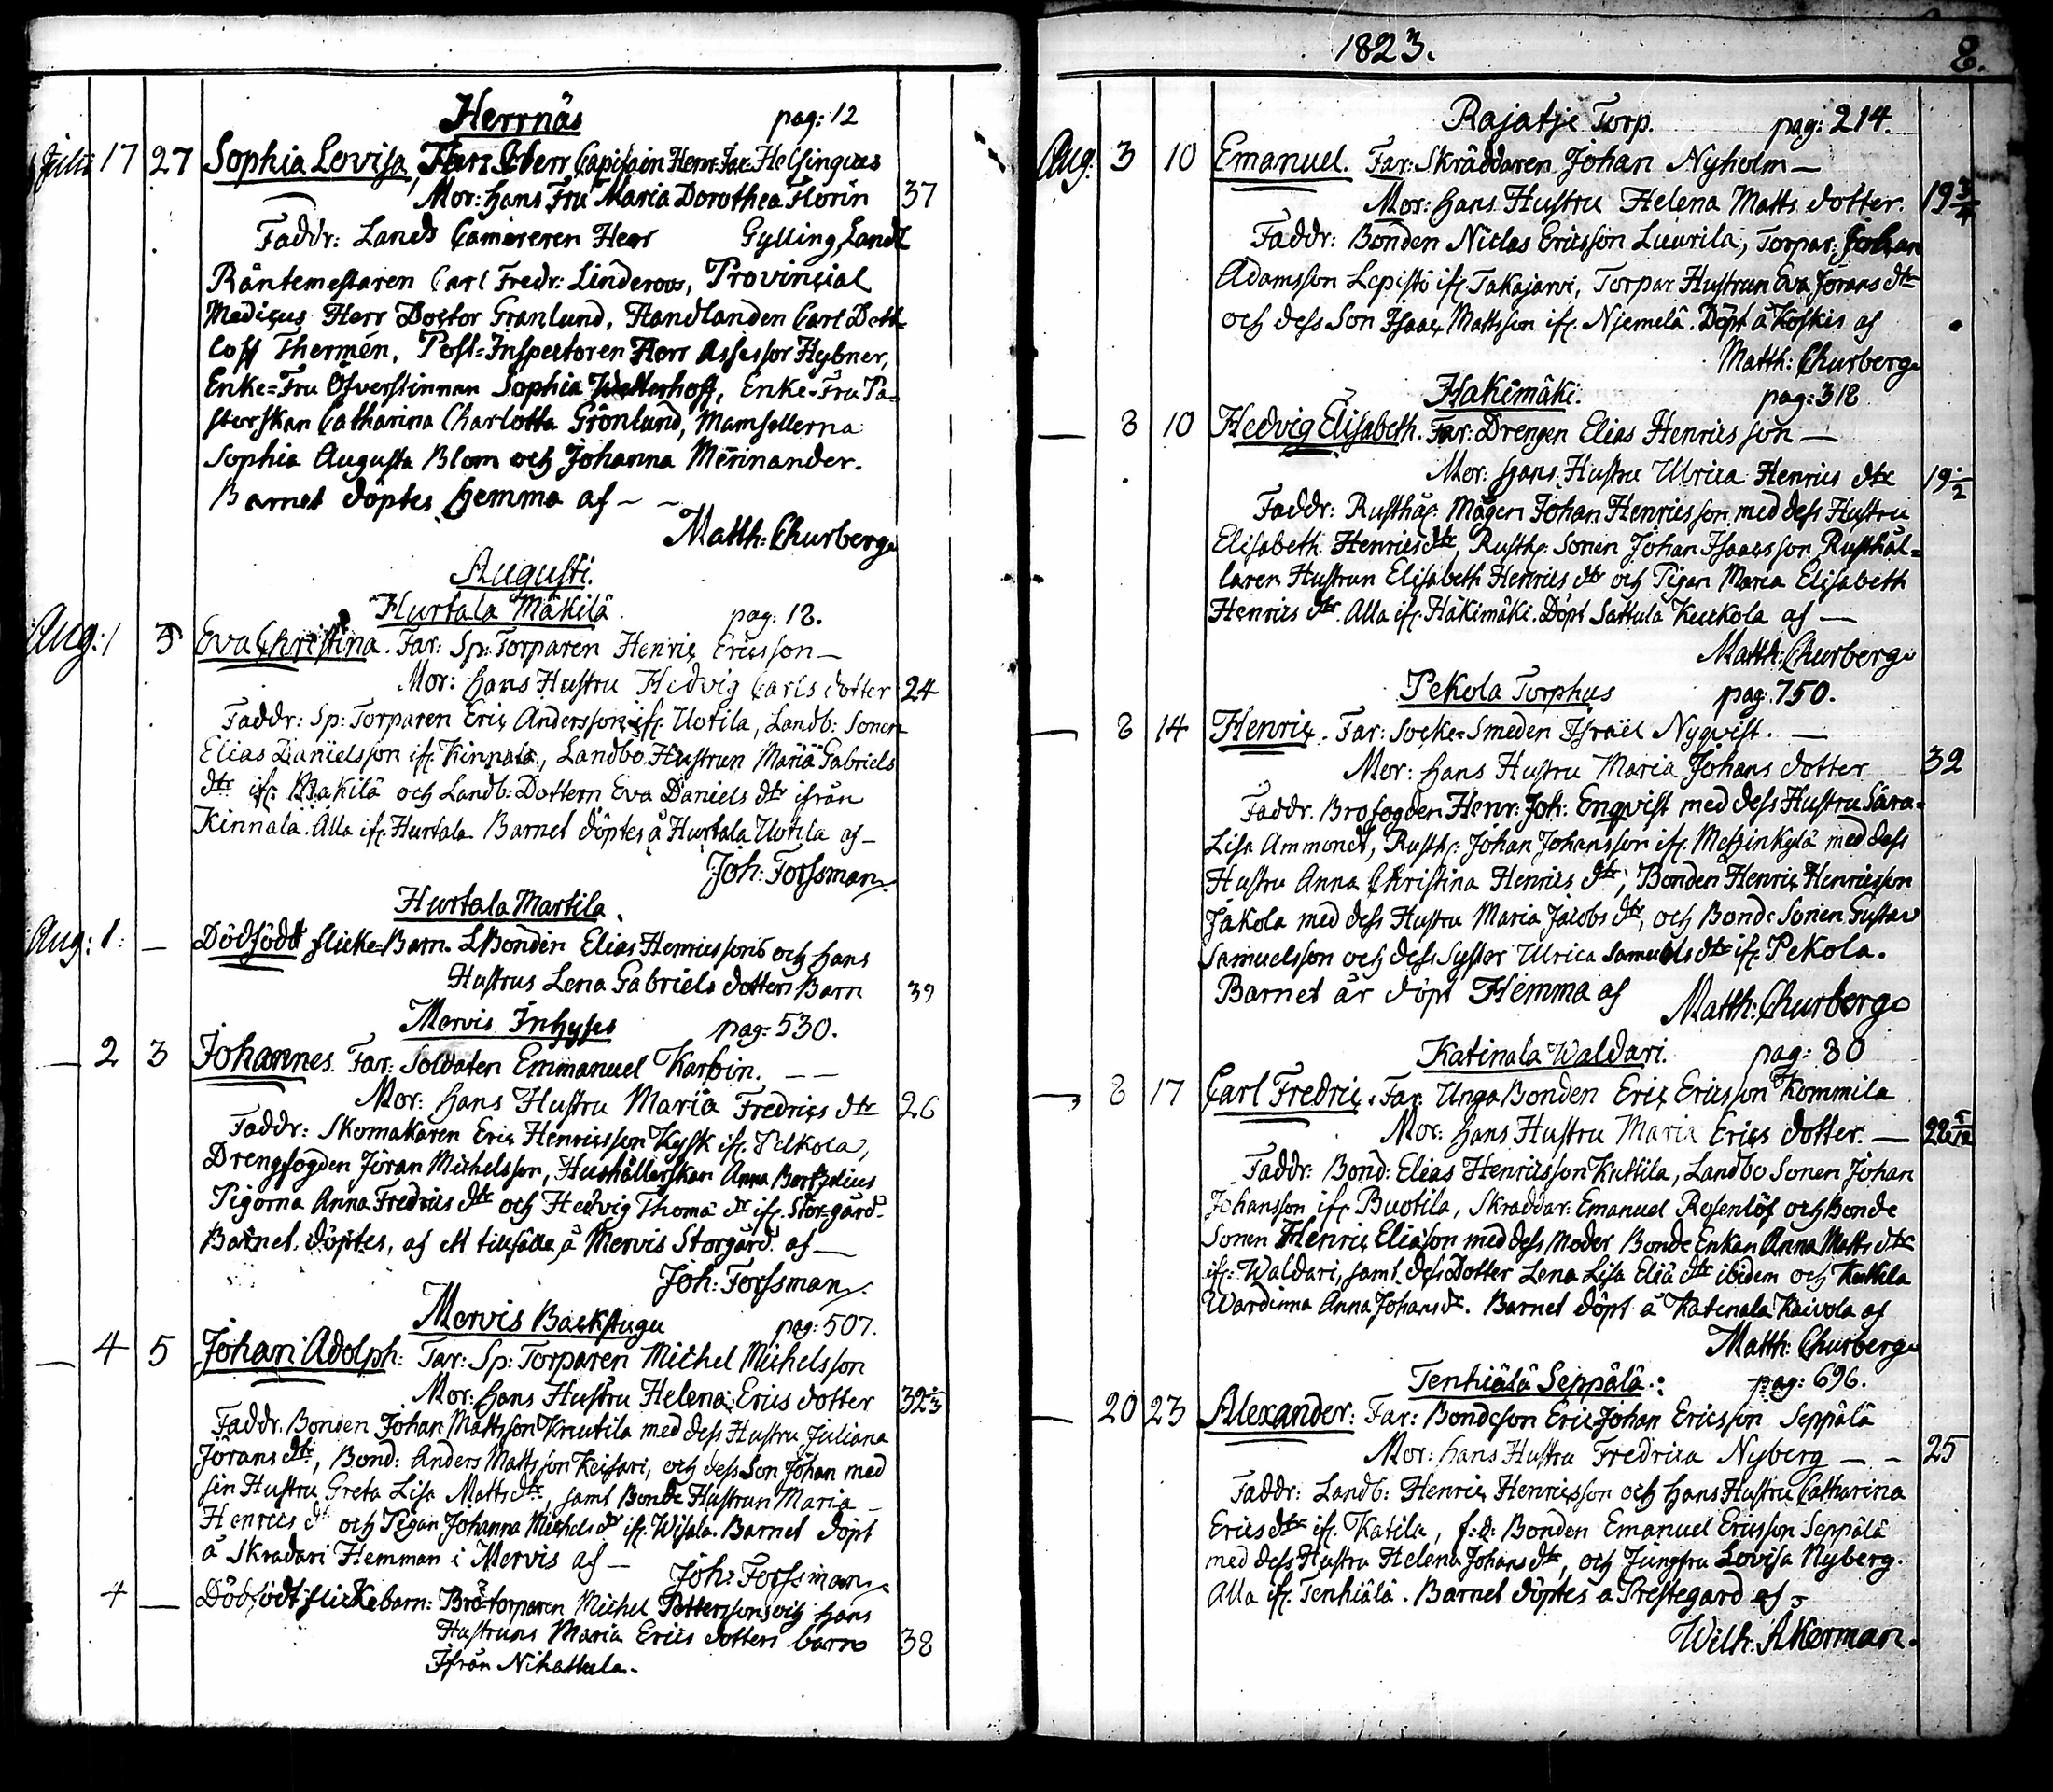 Herrnäs pag: 12
Julii 17 27 Sophia Lovisa, Herr Capitain Henr. Jac. Helsingius
Mor: hans Fru Maria Dorothea Florin 37
Faddr: Lands Camereren Herr Gylling, Landt
Räntemestaren Carl Fredr: Linderoos, Provincial
Medicus Herr Doctor Granlund, Handlanden Carl Deth
loff Thermén, Post-Inspectoren Herr Assessor Hybner,
Enke-Fru Öfverstinnan Sophia Wetterhoff, Enke-Fru Pa-
storskan Catharina Charlotta Grönlund, Mamsellerna
Sophia Augusta Blom och Johanna Mennander.
Barnet döptes hemma af - -
Matth: Churberg
Augusti.
Hurtala Mäkilä. pag: 18.
Aug: 1 3 Eva Christina. Far: Sp: Torparen Henric Ericsson -
Mor: hans Hustru Hedvig Carls dotter 24
Faddr: Sp: Torparen Eric Andersson if. Uotila, Landb: Sonen
Elias Danielsson if. Kinnala, Landbo Hustrun Maria Gabriels
dtr if. Mäkilä och Landb: Dottern Eva Daniels dtr ifrån
Kinnala. Alla if. Hurtala Barnet döptes å Hurtala Uotila af -
Joh: Forssman
Hurtala Martila.
Aug: 1: — Dödfödt flicke-Barn. LBonden Elias Henricssons och hans
Hustrus Lena Gabriels dotters Barn 39
Mervis Inhyses pag: 530.
— 2 3 Johannes. Far: Soldaten Emmanuel Karbin. — —
Mor: hans Hustru Maria Fredrics dtr 26
Faddr: Skomakaren Eric Henricsson Kysk if. Pelkola,
Drengfogden Jöran Michelsson, Hushållerskan Anna Bertzelius
Pigorna Anna Fredrics dtr och Hedvig Thomæ dr if. Storgård.
Barnet döptes, af ett tillfälle, å Mervis Storgård af —
Joh: Forssman.
Mervis Backstugu pag: 507.
— 4 5 Johan Adolph: Far: Sp: Torparen Michel Michelsson
Mor: hans Hustru Helena Erics dotter 32 2/3
Faddr. Bonden Johan Mattsson Knutila med dess Hustru Juliana
Jörans dtr, Bond: Anders Mattsson Keisari, och dess Son Johan med
sin Hustru Greta Lisa Matts dtr, samt Bonde Hustrun Maria -
Henrics dr och Pigan Johanna Michels dr if. Wisala. Barnet döpt
å Skradari Hemman i Mervis af — Joh: Forssman
4 — Dödfödt flickebarn: Brötorparen Michel Petterssons och hans
Hustrus Maria Erics dotters barn 38
Ifrån Nihattula.
1823. 8.
Rajatje Torp. pag: 214.
Aug. 3 10 Emanuel. Far: Skräddaren Johan Nyholm —
Mor: hans Hustru Helena Matts dotter. 19 3/4
Faddr: Bonden Niclas Ericsson Luurila, Torpar: Johan
Adamsson Lepistö if. Takajarvi, Torpar Hustrun Eva Jörans dtr
och dess Son Isaac Mattsson if. Njemelä. Döpt å Koskis af
Matth: Churberg
Hakimäki. pag: 318
— 8 10 Hedvig Elisabeth. Far: Drengen Elias Henricsson —
Mor: hans Hustru Ulrica Henrics dtr 19 1/2
Faddr: Rusthåls Mågen Johan Henricsson med dess Hustru
Elisabeth Henrics dtr, Rusth. Sonen Johan Isaacsson, Rusthål-
laren Hustrun Elisabeth Henrics dtr och Pigan Maria Elisabeth
Henrics dtr. Alla if. Häkimäki. Döpt Sattula Kuckola af —
Matth: Churberg
Pekola Torphus pag. 750.
— 8 14 Henric. Far: Socke-Smeden Israël Nyqvist. —
Mor: hans Hustru Maria Johans dotter 32
Faddr. Brofogden Henr: Joh: Enqvist med dess Hustru Sara
Lisa Ammondt, Rusth: Johan Johansson if. Metzinkylä med dess
Hustru Anna Christina Henrics dtr, Bonden Henric Henricsson
Jäkola med dess Hustru Maria Jacobs dtr, och Bonde Sonen Gustav
Samuelsson och dess Syster Ulrica Samuels dtr if. Pekola.
Barnet är döpt Hemma af Matth: Churberg
Katinala Waldari. pag: 30
— 8 17 Carl Fredric. Far: Unga Bonden Eric Ericsson Kommila
Mor: hans Hustru Maria Erics dotter. — 22 5/12
Faddr: Bond: Elias Henricsson Kuttila, Landbo Sonen Johan
Johansson if. Buotila, Skraddar: Emanuel Rosenlöf och Bonde
Sonen Henric Eliasson med dess Moder Bonde Enkan Anna Matts dtr
if. Waldari, samt dess Dotter Lena Lisa Eliæ dtr ibidem och Kuttila
Wärdinna Anna Johans dr. Barnet döpt å Katinala Kaivola af
Matth: Churberg
Tenhiälä Seppälä. pag: 696.
— 20 23 Alexander: Far: Bondeson Eric Johan Ericsson Seppälä
Mor: hans Hustru Fredrica Nyberg — - 25
Faddr: Landb: Henric Henricsson och hans Hustru Catharina
Erics dtr if. Katila, f: d: Bonden Emanuel Ericsson Seppälä
med dess Hustru Helena Johans dtr, och Jungfru Lovisa Nyberg.
Alla if. Tenhiälä. Barnet döptes å Prestegard af -
Wilh: Åkerman.